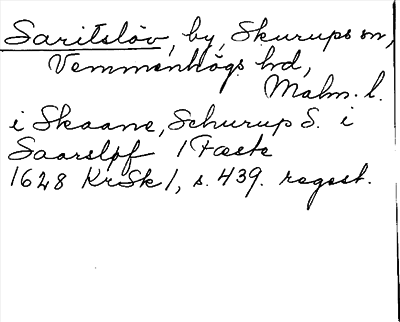 Saritslöv, by, Skurups sn,
Vemmenhögs hd,
Malm. l.
i Skaane, Schurup S. i
Saarsløf / Fæste
1628 KrSk /, s. 439. regest.